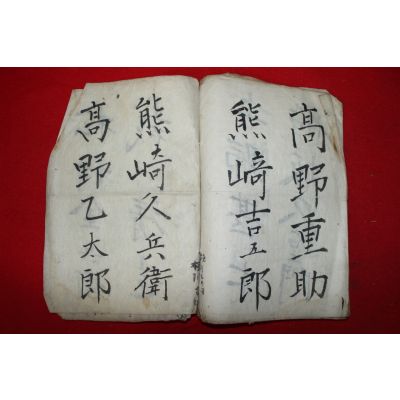 高野重助
熊﨑吉五郎
熊崎久兵衛
高野乙太郎